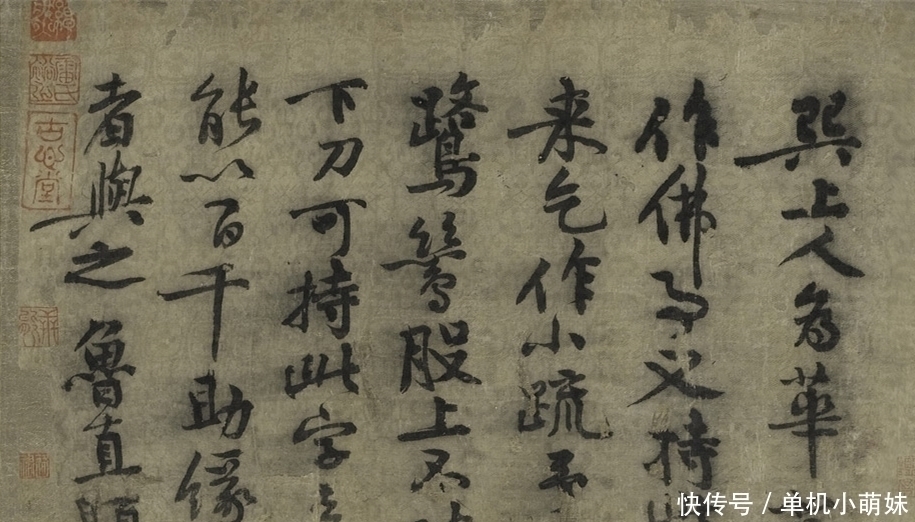 巽上人为華
作佛事父持
来乞作小疏
鷺鷥股上不
下刀可持此字
能以百千助緣
者與之 魯直
古心堂
快传号 / 单机小萌妹